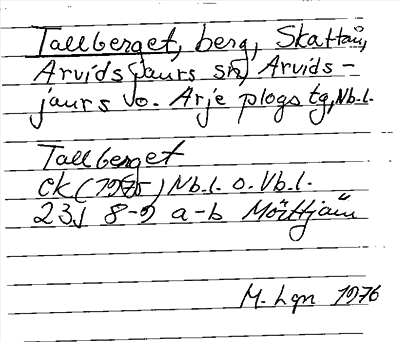 Tallberget, berg, Skattån,
Arvidsjaurs sn, Arvids-
jaurs o. Arjeplogs tg, Nb.l.
Tallberget
EK (1975) Nb.l. o. Vb.l.
23J 8-9 a-b Mörttjärn
M. Lgn 1976